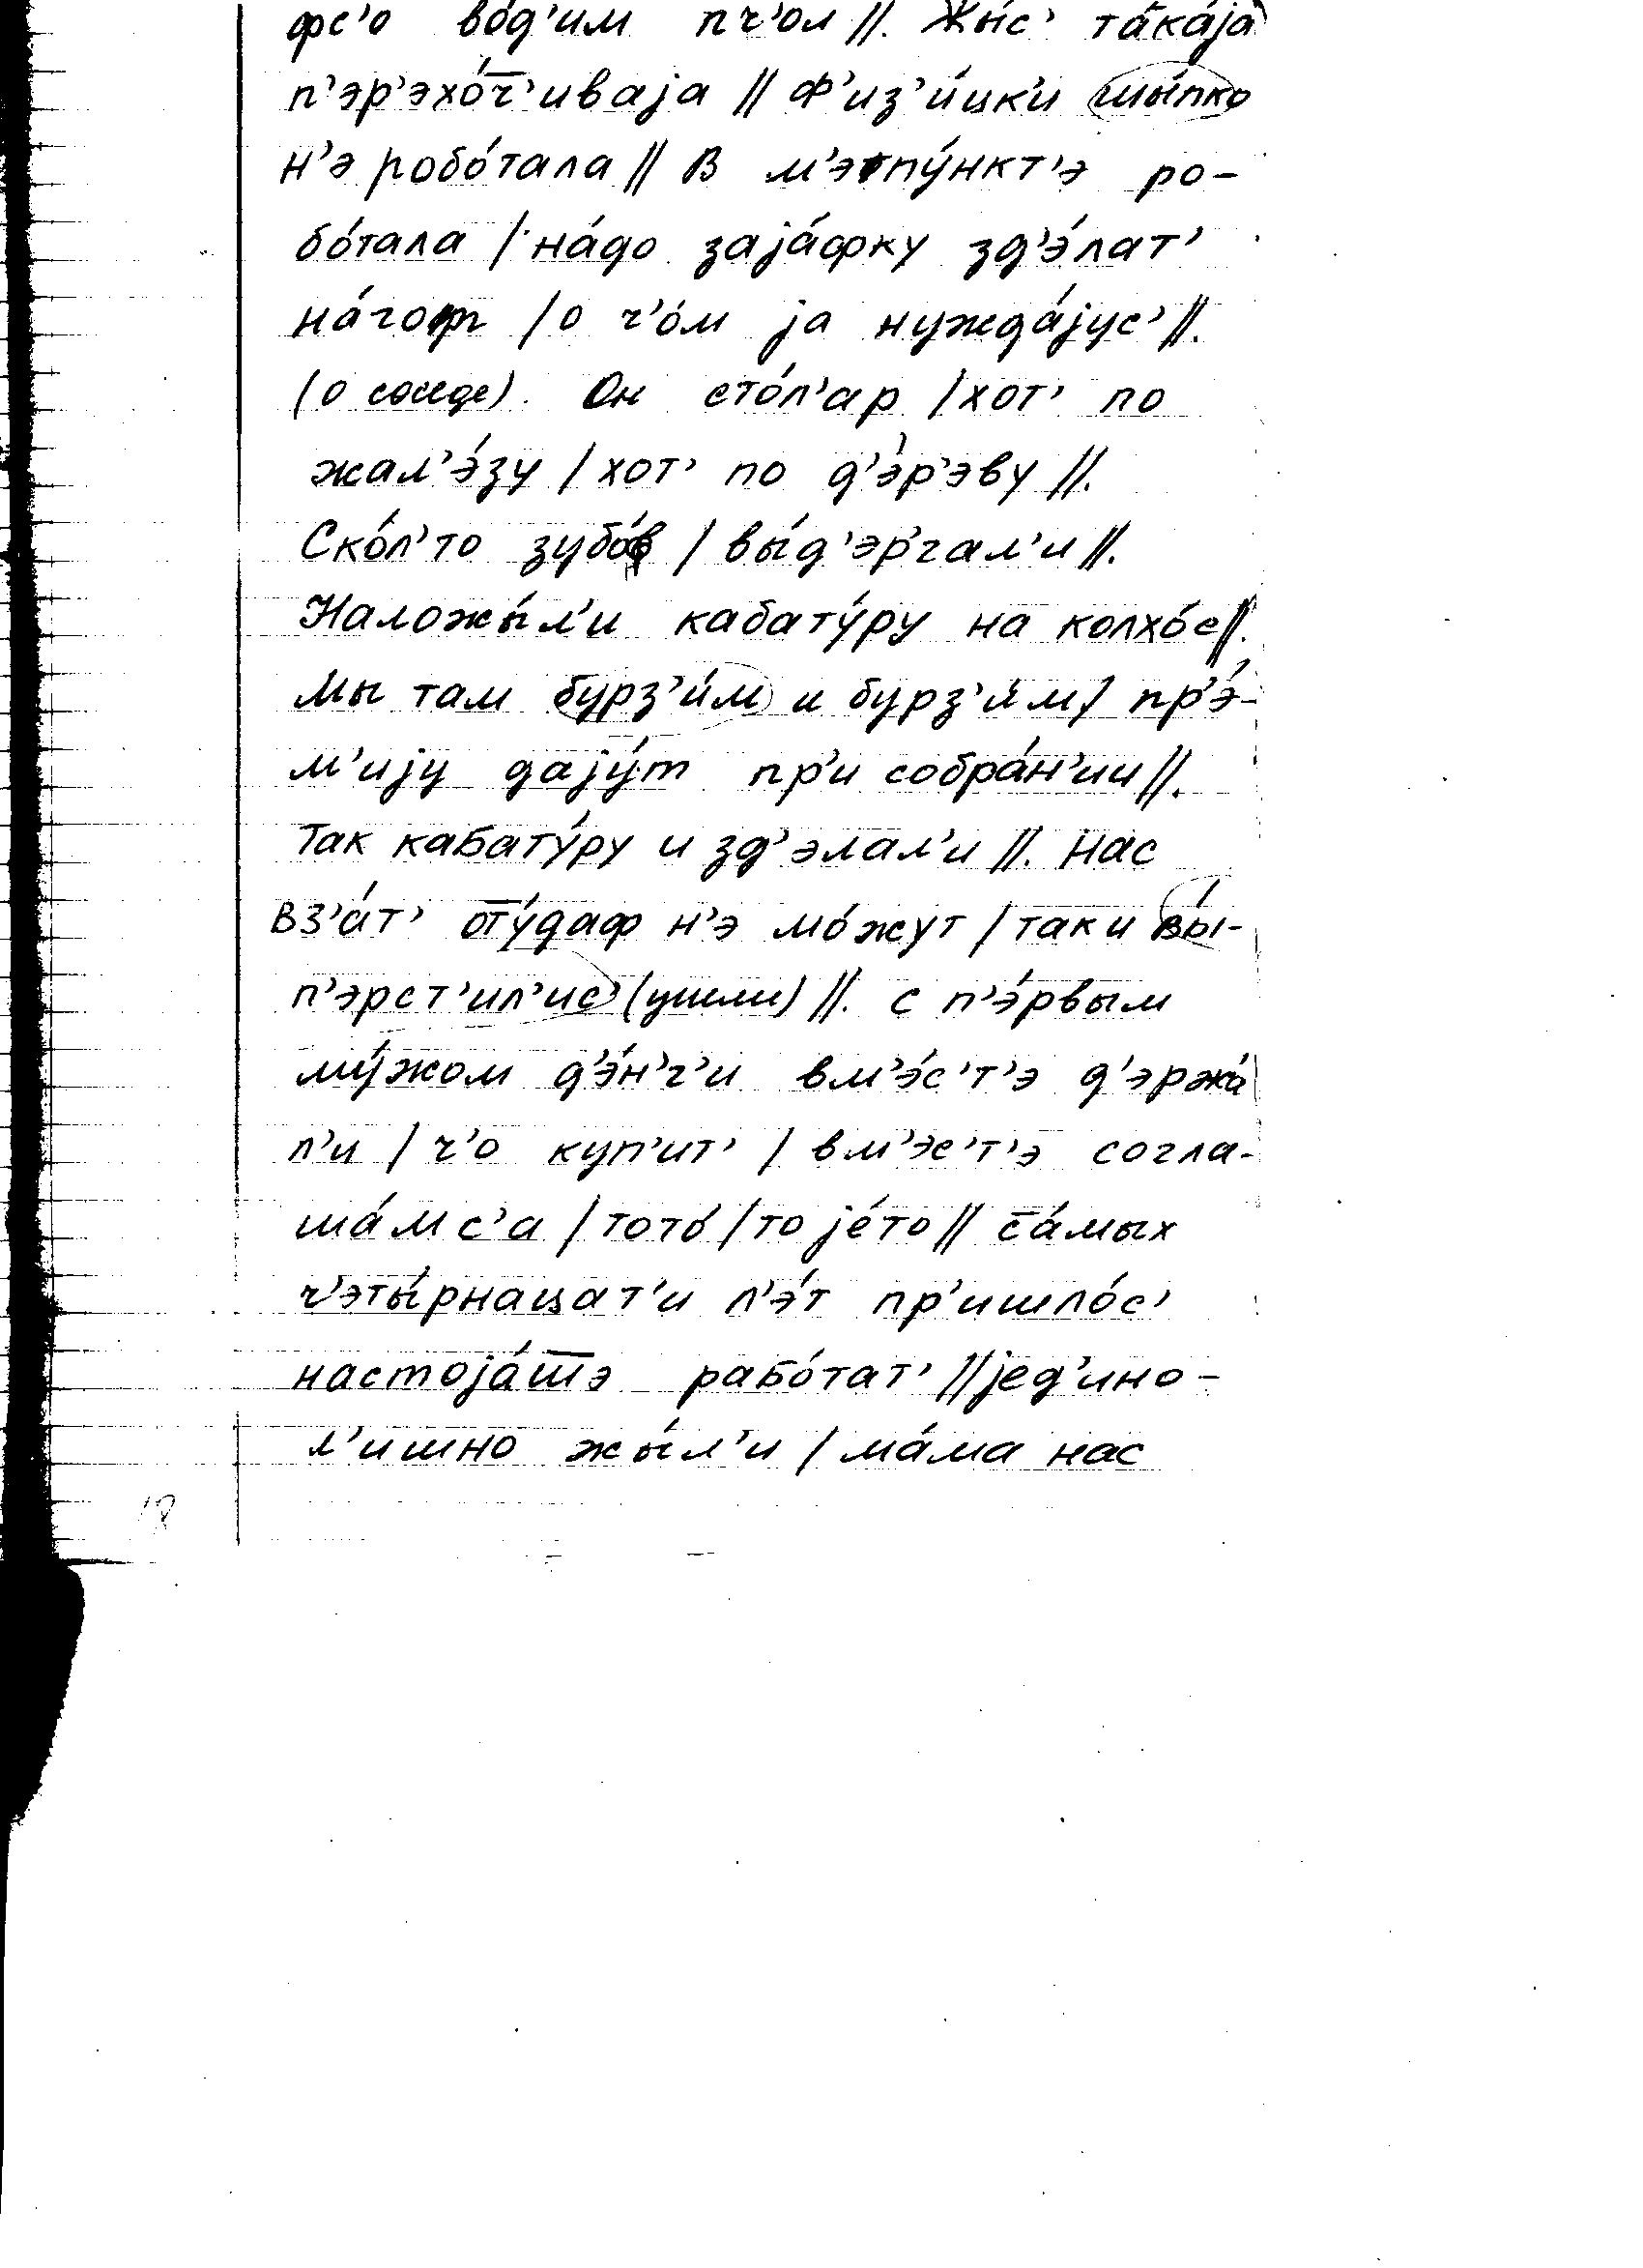 фс'о во́д'им пч'ол //. Жы́с' та́ка́jа
п'эр'эхо́ч̅'иваjа // Ф'из'и́цк'и шы́пко
н'э робо́тала // В м'этпу́нкт'э ро-
бо́тала / на́до заjа́фку зд'э́лат'
на́гот / о ч'о́м jа нужда́jус' //.
(о соседе). Он сто́л'ар / хот' по
жал'э́зу / хот' по д'э́р'эву //.
Ско́л'то зубо́в / вы́д'эргал'и //.
Наложы́л'и кабату́ру на колхо́с //.
Мы там бурз'и́м и бурз'и́м / пр'э́-
м'иjу даjу́т пр'и собра́н'ии //.
Так кабату́ру и зд'элал'и //. Нас
вз'а́т' от̅у́даф н'э мо́жут / так и вы́-
п'эрст'ил'ис' (ушли) //. с п'э́рвым
му́жом д'э́н'г'и вм'э́с'т'э д'эржа́
л'и / ч'о куп'ит' / вм'эс'т'э согла-
ша́мс'а / тото́ / то jе́то // са́мых
ч'эты́рнацат'и л'э́т пр'ишло́с'
настоjа́ш̅э рабо́тат' // jед'ино-
л'ишно жы́л'и / ма́ма нас
18